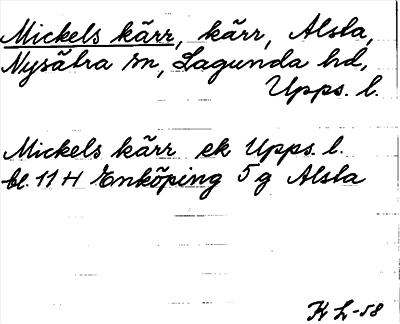 Mickels kärr, kärr, Alsta,
Nysätra sn, Lagunda hd,
Upps. l.
Mickels kärr ek Upps. l.
bl. 11 H Enköping 5 g Alsta
K L-58